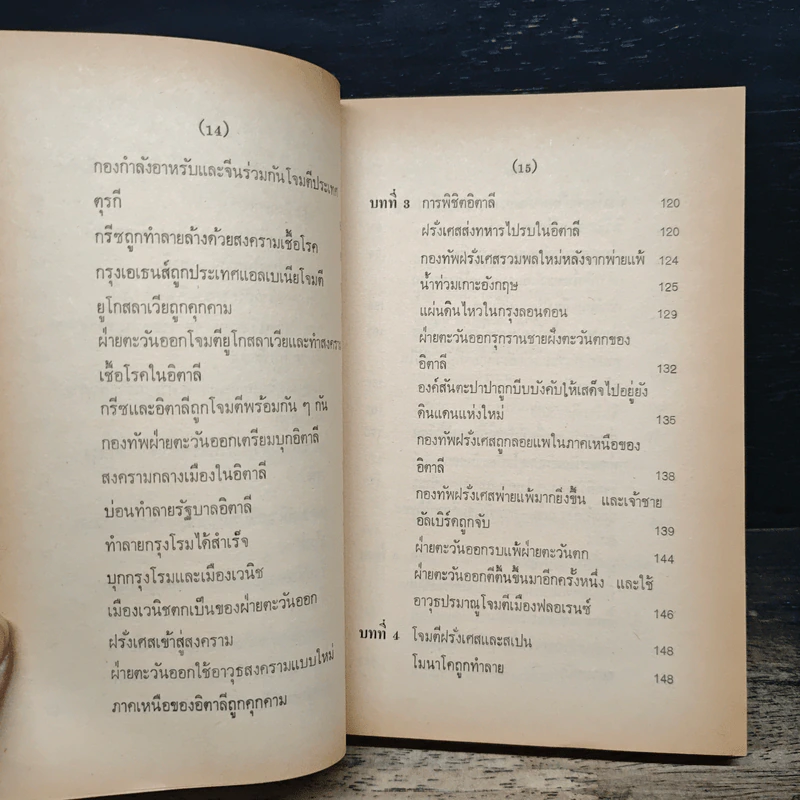 (14)
กองกำลังอาหรับและจีนร่วมกันโจมตีประเทศ
ตุรกี
กรีซถูกทำลายล้างด้วยสงครามเชื้อโรค
กรุงเอเธนส์ถูกประเทศแอลเบเนียโจมตี
ยูโกสลาเวียถูกคุกคาม
ฝ่ายตะวันออกโจมตียูโกสลาเวียและทำสงคราม
เชื้อโรคในอิตาลี
กรีซและอิตาลีถูกโจมตีพร้อมกัน ๆ กัน
กองทัพฝ่ายตะวันออกเตรียมบุกอิตาลี
สงครามกลางเมืองในอิตาลี
บ่อนทำลายรัฐบาลอิตาลี
ทำลายกรุงโรมได้สำเร็จ
บุกกรุงโรมและเมืองเวนิช
เมืองเวนิชตกเป็นของฝ่ายตะวันออก
ฝรั่งเศสเข้าสู่สงคราม
ฝ่ายตะวันออกใช้อาวุธสงครามแบบใหม่
ภาคเหนือของอิตาลีถูกคุกคาม
(15)
บทที่ 3 การพิชิตอิตาลี 120
ฝรั่งเศสส่งทหารไปรบในอิตาลี 120
กองทัพฝรั่งเศสรวมพลใหม่หลังจากพ่ายแพ้ 124
น้ำท่วมเกาะอังกฤษ 125
แผ่นดินไหวในกรุงลอนดอน 129
ฝ่ายตะวันออกรุกรานชายฝั่งตะวันตกของ
อิตาลี 132
องค์สันตะปาปาถูกบีบบังคับให้เสด็จไปอยู่ยัง
ดินแดนแห่งใหม่ 135
กองทัพฝรั่งเศสถูกลอยแพในภาคเหนือของ
อิตาลี 138
กองทัพฝรั่งเศสพ่ายแพ้มากยิ่งขึ้น และเจ้าชาย
อัลเบิร์ตถูกจับ 139
ฝ่ายตะวันออกรบแพ้ฝ่ายตะวันตก 144
ฝ่ายตะวันออกตีตื้นขึ้นมาอีกครั้งหนึ่ง และใช้
อาวุธปรมาณูโจมตีเมืองฟลอเรนซ์ 146
บทที่ 4 โจมตีฝรั่งเศสและสเปน 148
โมนาโคถูกทำลาย 148